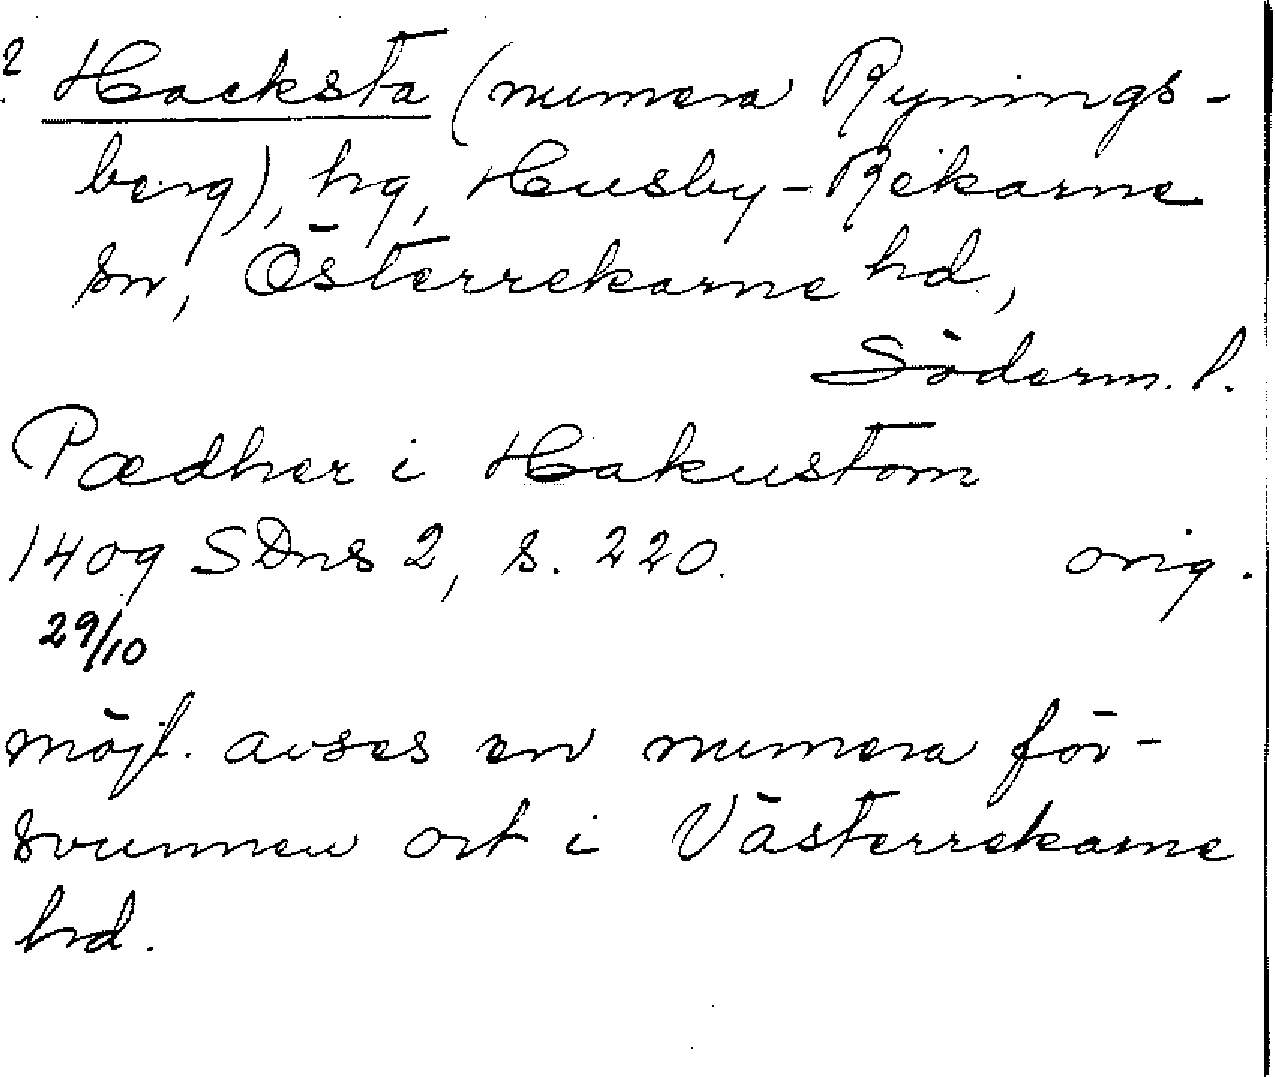 ? Hacksta (numera Rynings-
berg), hg, Husby-Rekarne
sn, Österrekarne hd,
Söderm. l.
Pædher i Hakustom
1409 SDns 2, s. 220. orig.
29/10
möjl. avses en numera för-
svunnen ort i Västerrekarne
hd.